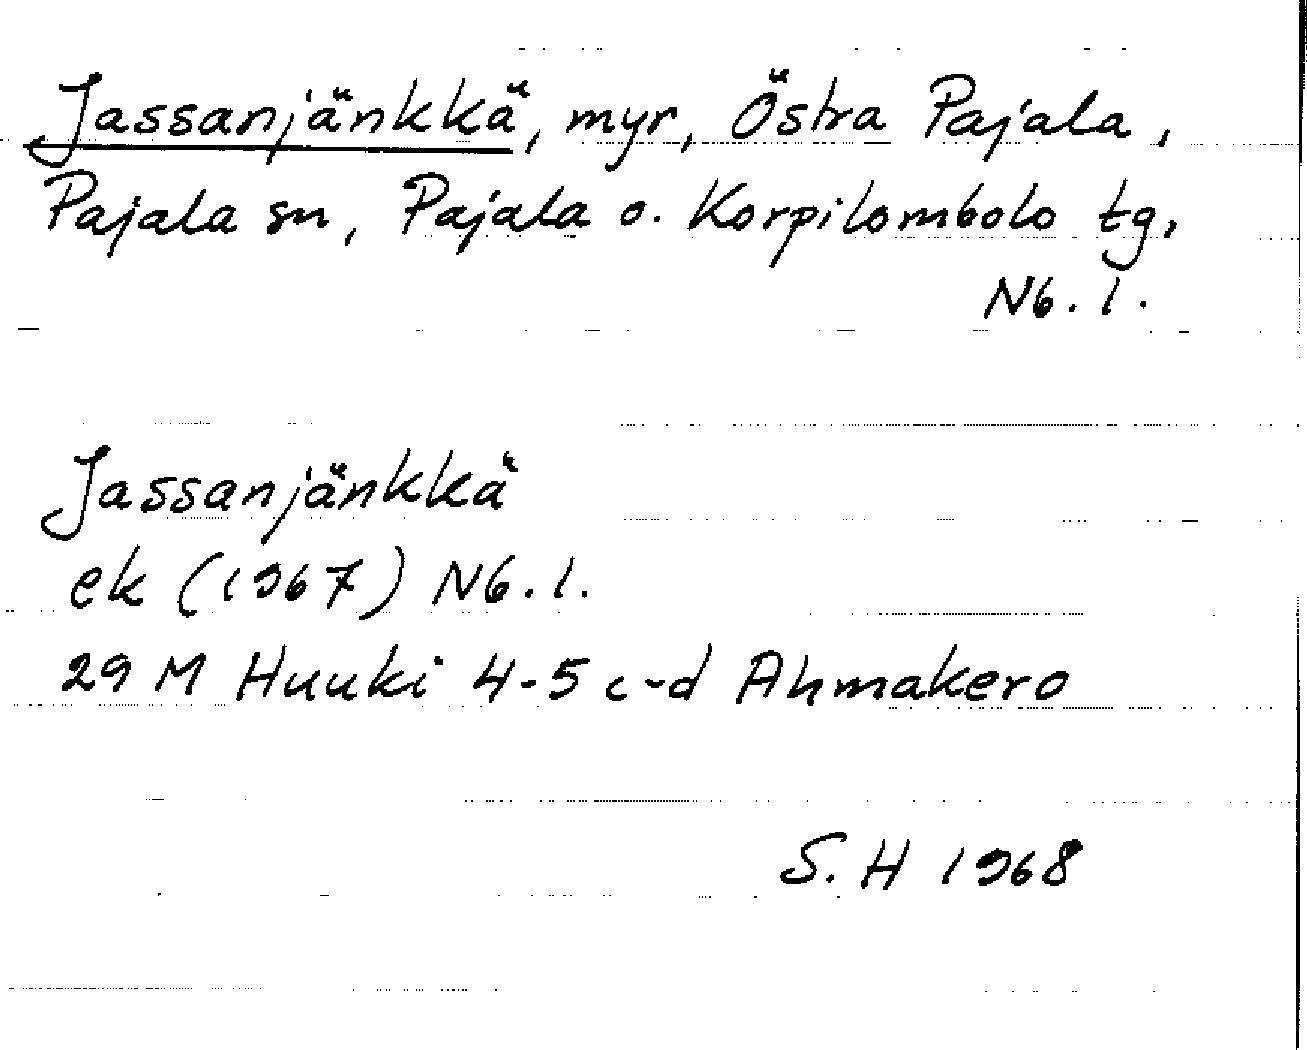 Jassanjänkkä, myr, Östra Pajala,
Pajala sn, Pajala o. Korpilombolo tg,
Nb. l.
Jassanjänkkä
ek (1967) Nb. l.
29 M Huuki 4-5 c-d Ahmakero
S. H 1968